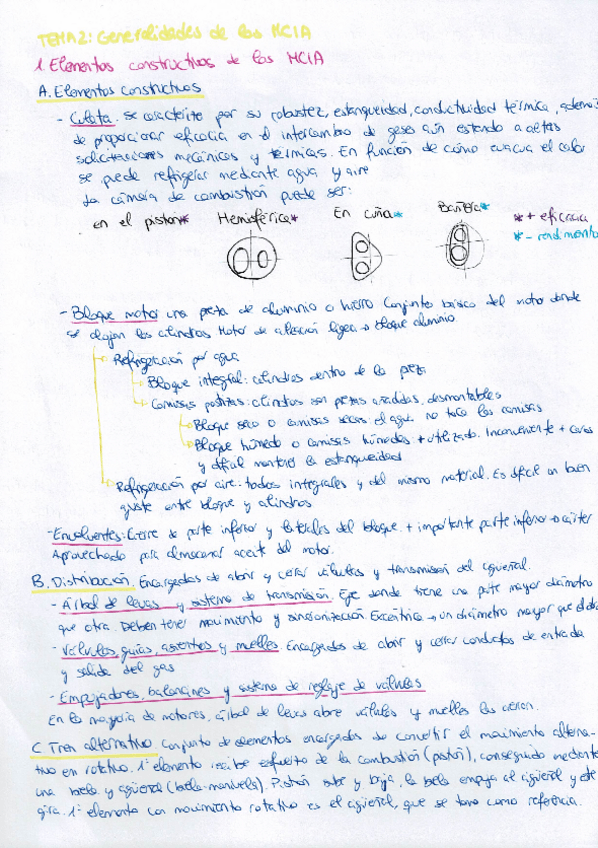 TEMA 2: Generalidades de los MCIA
1. Elementos constructivos de los MCIA
A. Elementos constructivos
- Culata. se caracteriza por su robustez, estanqueidad, conductividad térmica, además
de proporcionar eficacia en el intercambio de gases aún estando a altas
solicitaciones mecánicas y térmicas. En función de cómo evacua el calor
se puede refrigerar mediante agua y aire
La cámara de combustión puede ser:
en el pistón* Hemisférica* En cuña* Bañera* * + eficacia
* - rendimiento
- Bloque motor una pieza de aluminio o hierro Conjunto básico del motor donde
se alojan los cilindros Motor de aleación ligera → bloque aluminio.
Refrigeración por agua
Bloque integral: cilindros dentro de la pieza
Camisas postizas: cilindros son piezas añadidas, desmontables
Bloque seco o camisas secas el agua no toca las camisas
Bloque húmedo o camisas húmedas: + utilizado. Inconveniente + caros
y difícil mantener la estanqueidad
Refrigeración por aire: todos integrales y del mismo material. Es difícil un buen
ajuste entre bloque y cilindros
- Envolventes: Cierre de parte inferior y laterales del bloque. + importante parte inferior → cárter
Aprovechado para almacenar aceite del motor.
B. Distribución. Encargados de abrir y cerrar válvulas y transmisión del cigüeñal.
- Árbol de levas y sistema de transmisión. Eje donde tiene una parte mayor diámetro
que otra. Deben tener movimiento y sincronización Excéntrica → un diámetro mayor que el
- Válvulas, guías, asientos y muelles. Encargados de abrir y cerrar conductos de entrada
y salida del gas
- Empujadores, balancines y sistema de reglaje de válvulas
En la mayoría de motores, árbol de levas abre válvulas y muelles las cierran.
C. Tren alternativo. Conjunto de elementos encargados de convertir el movimiento alterna-
tivo en rotativo. 1º elemento recibe esfuerzo de la combustión (pistón), conseguido mediante
una biela y cigüeñal (biela-manivela). Pistón sube y baja, la biela empuja al cigüeñal y este
gira. 1º elemento con movimiento rotativo es el cigüeñal, que se toma como referencia.